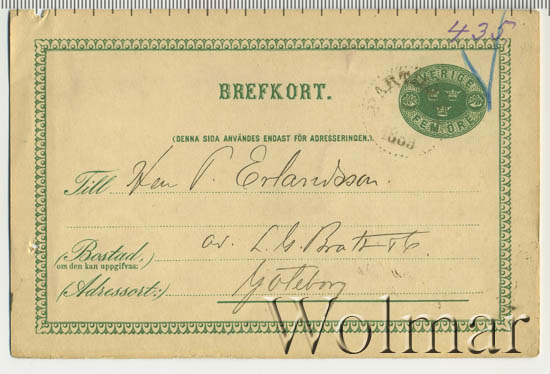 435
SVERIGE
FEM ÖRE
BREFKORT.
(DENNA SIDA ANVÄNDES ENDAST FÖR ADRESSERINGEN.)
Till Herr P. Erlandsson.
(Bostad,
om den kan uppgifvas:)
av. L. G. Bratt
(Adressort:) Göteborg
Wolmar